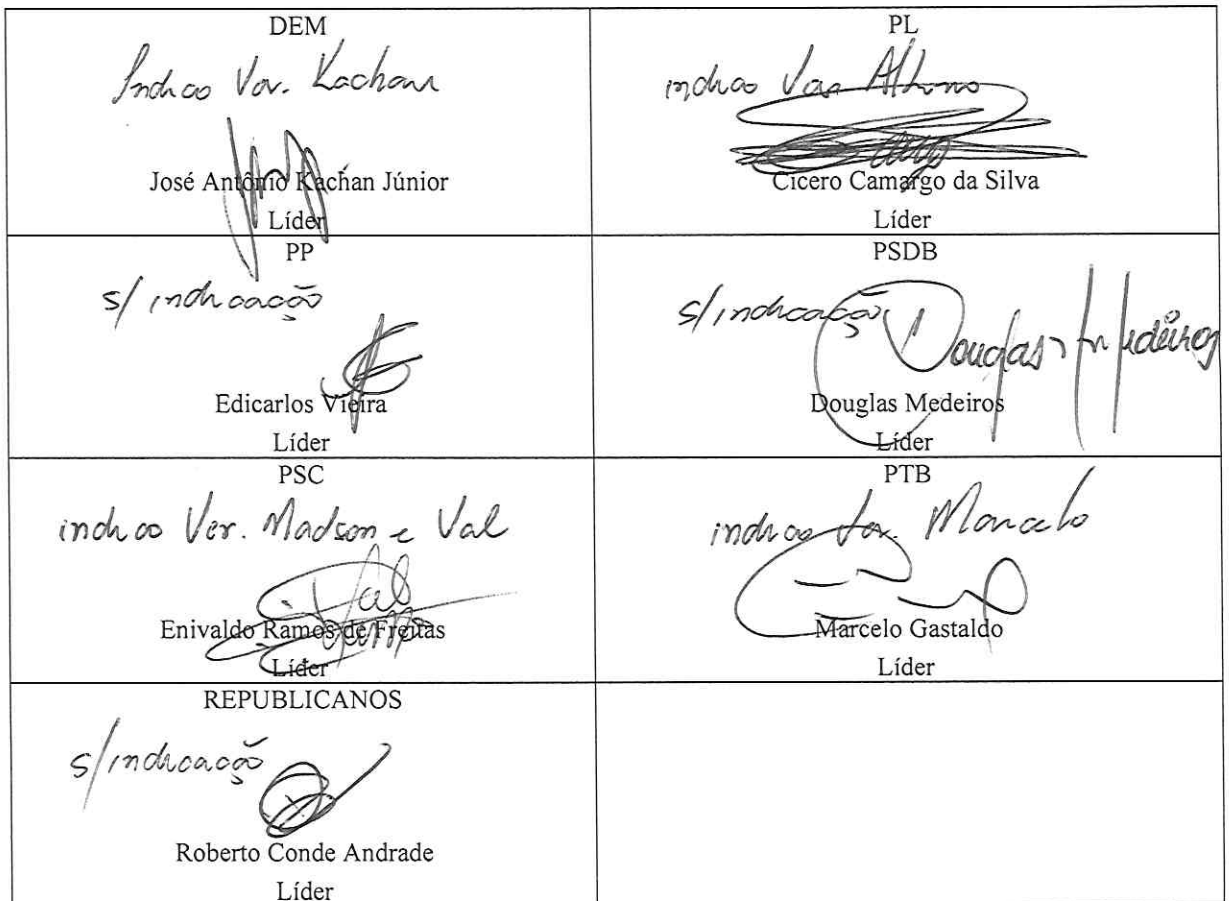 DEM
Indico Ver. Kachan
José Antônio Kachan Júnior
Líder
PL
indico Ver
Cícero Camargo da Silva
Líder
PP
s/ indicação
Edicarlos Vieira
Líder
PSDB
s/ indicação
Douglas Medeiros
Douglas Medeiros
Líder
PSC
indico Ver. Madson e Val
Val
Enivaldo Ramos de Freitas
Líder
PTB
indico Ver. Marcelo
Marcelo Gastaldo
Líder
REPUBLICANOS
s/ indicação
Roberto Conde Andrade
Líder